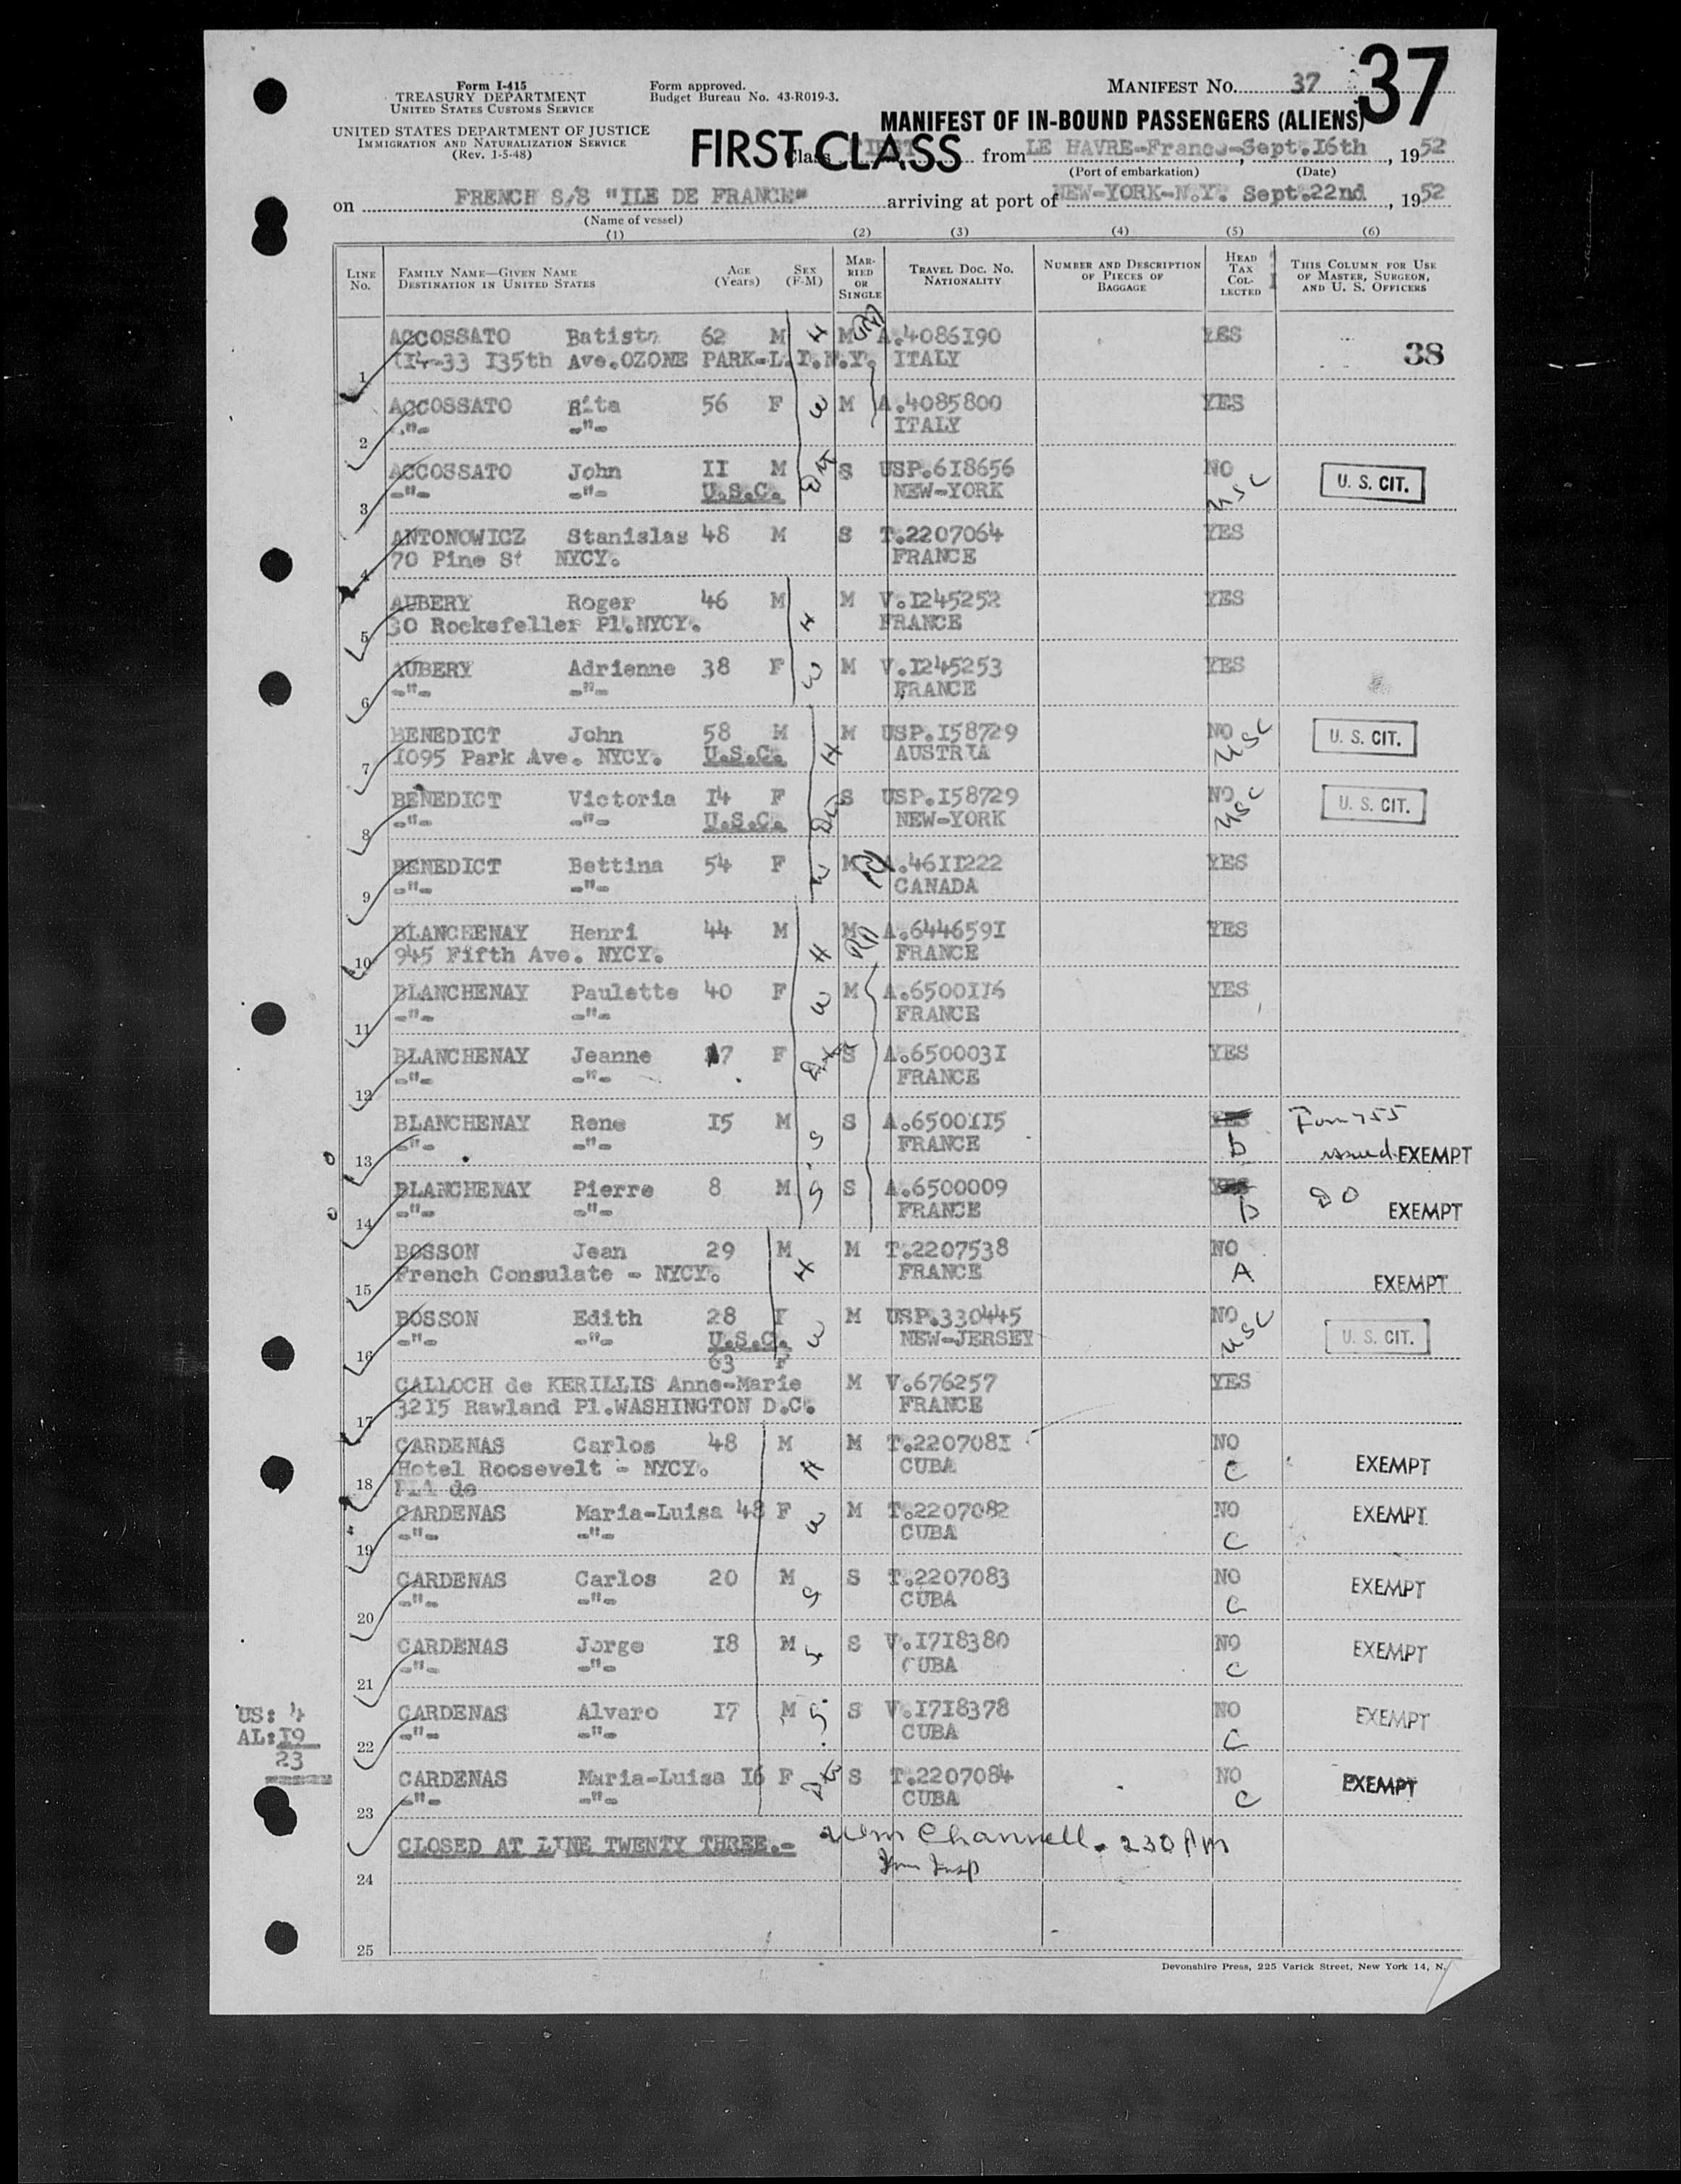 37
Form I-415
TREASURY DEPARTMENT
UNITED STATES CUSTOMS SERVICE
UNITED STATES DEPARTMENT OF JUSTICE
IMMIGRATION AND NATURALIZATION SERVICE
(Rev. 1-5-48)
Form approved.
Budget Bureau No. 43-R019-3.
MANIFEST NO. 37
MANIFEST OF IN-BOUND PASSENGERS (ALIENS)
FIRST CLASS
Class from LE HAVRE-France-Sept.16th, 1952
(Port of embarkation) (Date)
on FRENCH S/S "ILE DE FRANCE" arriving at port of NEW-YORK-N.Y. Sept.22nd, 1952
(Name of vessel)
(1) (2) (3) (4) (5) (6)
LINE NO. FAMILY NAME—GIVEN NAME DESTINATION IN UNITED STATES AGE (Years) SEX (F-M) MARRIED OR SINGLE TRAVEL DOC. NO. NATIONALITY NUMBER AND DESCRIPTION OF PIECES OF BAGGAGE HEAD TAX COLLECTED THIS COLUMN FOR USE OF MASTER, SURGEON, AND U. S. OFFICERS
ACCOSSATO Batista 62 M H M A.4086190 YES
1 114-33 135th Ave.OZONE PARK-L.I.N.Y. ITALY 38
ACCOSSATO Rita 56 F W M A.4085800 YES
2 -"- -"- ITALY
ACCOSSATO John II M S USP.618656 NO U. S. CIT.
3 -"- -"- U.S.C. NEW-YORK USC
ANTONOWICZ Stanislas 48 M S T.2207064 YES
4 70 Pine St NYCY. FRANCE
AUBERY Roger 46 M H M V.1245252 YES
5 30 Rockefeller Pl.NYCY. FRANCE
AUBERY Adrienne 38 F W M V.1245253 YES
6 -"- -"- FRANCE
BENEDICT John 58 M H M USP.158729 NO U. S. CIT.
7 1095 Park Ave. NYCY. U.S.C. AUSTRIA USC
BENEDICT Victoria 14 F S USP.158729 NO U. S. CIT.
8 -"- -"- U.S.C. NEW-YORK USC
BENEDICT Bettina 54 F W M A.4611222 YES
9 -"- -"- CANADA
BLANCHENAY Henri 44 M H M A.6446591 YES
10 945 Fifth Ave. NYCY. FRANCE
BLANCHENAY Paulette 40 F W M A.6500116 YES
11 -"- -"- FRANCE
BLANCHENAY Jeanne 17 F S A.6500031 YES
12 -"- -"- FRANCE
BLANCHENAY Rene 15 M S S A.6500115 YES Form 755
13 -"- -"- FRANCE D issued EXEMPT
BLANCHENAY Pierre 8 M S S A.6500009 YES DO
14 -"- -"- FRANCE D EXEMPT
BOSSON Jean 29 M H M T.2207538 NO
15 French Consulate - NYCY. FRANCE A EXEMPT
BOSSON Edith 28 F W M USP.330445 NO U. S. CIT.
16 -"- -"- U.S.C. NEW-JERSEY USC
63 F
CALLOCH de KERILLIS Anne-Marie M V.676257 YES
17 3215 Rawland Pl.WASHINGTON D.C. FRANCE
CARDENAS Carlos 48 M H M T.2207081 NO EXEMPT
18 Hotel Roosevelt - NYCY. CUBA C
de
CARDENAS Maria-Luisa 48 F W M T.2207082 NO EXEMPT
19 -"- -"- CUBA C
CARDENAS Carlos 20 M S S T.2207083 NO EXEMPT
20 -"- -"- CUBA C
CARDENAS Jorge 18 M S S V.1718380 NO EXEMPT
21 -"- -"- CUBA C
CARDENAS Alvaro 17 M S S V.1718378 NO EXEMPT
22 -"- -"- CUBA C
CARDENAS Maria-Luisa 16 F S T.2207084 NO EXEMPT
23 -"- -"- CUBA C
US: 4
AL: 19
23
CLOSED AT LINE TWENTY THREE.- Wm Channell. 230 PM
Imm Insp
24
25
Devonshire Press, 225 Varick Street, New York 14, N.